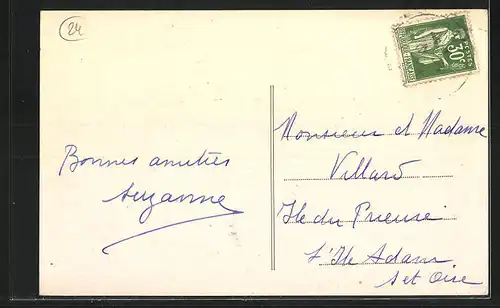 24
30c
POSTES
Bonnes amitiés
Suzanne
Monsieur et Madame
Villard
Ile du Prieuré
L'Ile Adam
S et Oise